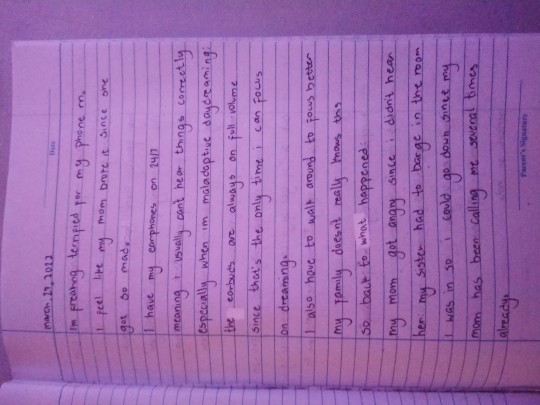 Date
march 29, 2022
im freaking terrified for my phone rn.
i feel like my mom broke it since one
got so mad.
I have my earphones on 24/7
meaning i usually cant hear things correctly
especially when im maladaptive daydreaming.
the earbuds are always on full volume
since that's the only time i can focus
on dreaming.
I also have to walk around to focus better
my family doesnt really knows this
so back to what happened
my mom got angry since i didnt hear
her my sister had to barge in the room
I was in so i could go down since my
mom has been calling me several times
already
Parent's Signature